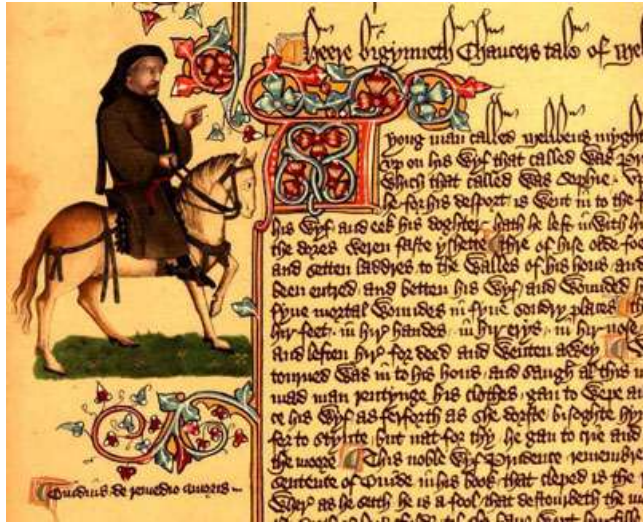 Heere bigynneth Chaucers tale of Mel
A yong man called Melibeus myght
vp on his wyf that called was
which that called was Sophie
he for his desport is went in to the
his wyf and eek his doghter hath he left inwith
the dores weren faste yshette Thre of hise olde fo
and setten laddres to the walles of his hous and
been entred and betten his wyf and wounded
fyue mortal woundes in fyue sondry places
hir feet in hir handes in hir erys in hir nose
and leften hir for deed and wenten awey
tourned was in to his hous and saugh al this m
mad man rentynge his clothes gan to wepe and
ce his wyf as ferforth as she dorste bisoghte hy
for to stynte but nat for thy he gan to crie and
the moore This noble wyf Prudence remembre
sentence of Ouide in his book that cleped is the
wher as he seith he is a fool that destourbeth the m
Ouidius de remedio amoris